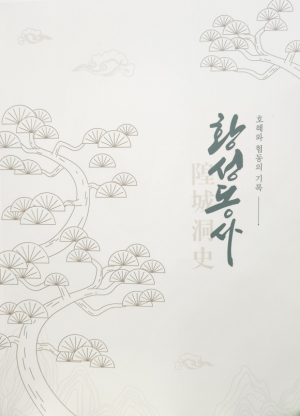 호혜와 협동의 기록
황성동사
隍城洞史